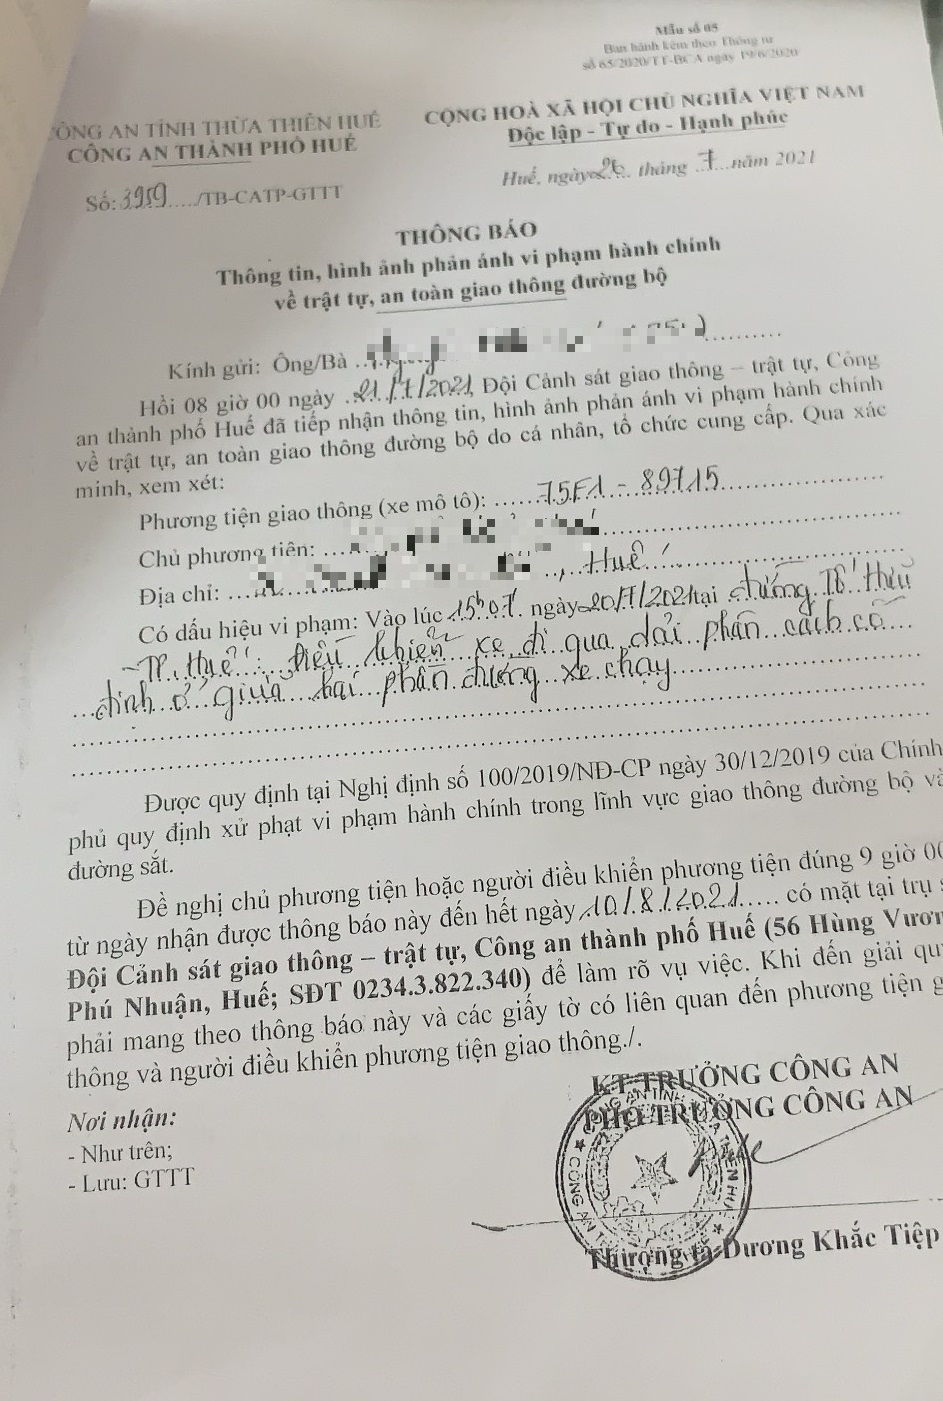 Mẫu số 05
Ban hành kèm theo Thông tư
số 65/2020/TT-BCA ngày 19/6/2020
CÔNG AN TỈNH THỪA THIÊN HUẾ
CÔNG AN THÀNH PHỐ HUẾ
CỘNG HOÀ XÃ HỘI CHỦ NGHĨA VIỆT NAM
Độc lập - Tự do - Hạnh phúc
Số: 3959..../TB-CATP-GTTT
Huế, ngày 26.... tháng ..7...năm 2021
THÔNG BÁO
Thông tin, hình ảnh phản ánh vi phạm hành chính
về trật tự, an toàn giao thông đường bộ
Kính gửi: Ông/Bà
Hồi 08 giờ 00 ngày .21./7/2021, Đội Cảnh sát giao thông – trật tự, Công
an thành phố Huế đã tiếp nhận thông tin, hình ảnh phản ánh vi phạm hành chính
về trật tự, an toàn giao thông đường bộ do cá nhân, tổ chức cung cấp. Qua xác
minh, xem xét:
Phương tiện giao thông (xe mô tô): ......75F1 - 89715
Chủ phương tiện:
Địa chỉ: ..., Huế
Có dấu hiệu vi phạm: Vào lúc 15h07. ngày 20/7/2021 tại đường Tố Hữu
- TP. Huế: Điều khiển xe đi qua dải phân cách cố
định ở giữa hai phần đường xe chạy
Được quy định tại Nghị định số 100/2019/NĐ-CP ngày 30/12/2019 của Chính
phủ quy định xử phạt vi phạm hành chính trong lĩnh vực giao thông đường bộ và
đường sắt.
Đề nghị chủ phương tiện hoặc người điều khiển phương tiện đúng 9 giờ 00
từ ngày nhận được thông báo này đến hết ngày .10/8/2021..... có mặt tại trụ
Đội Cảnh sát giao thông – trật tự, Công an thành phố Huế (56 Hùng Vươn
Phú Nhuận, Huế; SĐT 0234.3.822.340) để làm rõ vụ việc. Khi đến giải qu
phải mang theo thông báo này và các giấy tờ có liên quan đến phương tiện g
thông và người điều khiển phương tiện giao thông./.
Nơi nhận:
- Như trên;
- Lưu: GTTT
KT.TRƯỞNG CÔNG AN
PHÓ TRƯỞNG CÔNG AN
Thượng tá Dương Khắc Tiệp